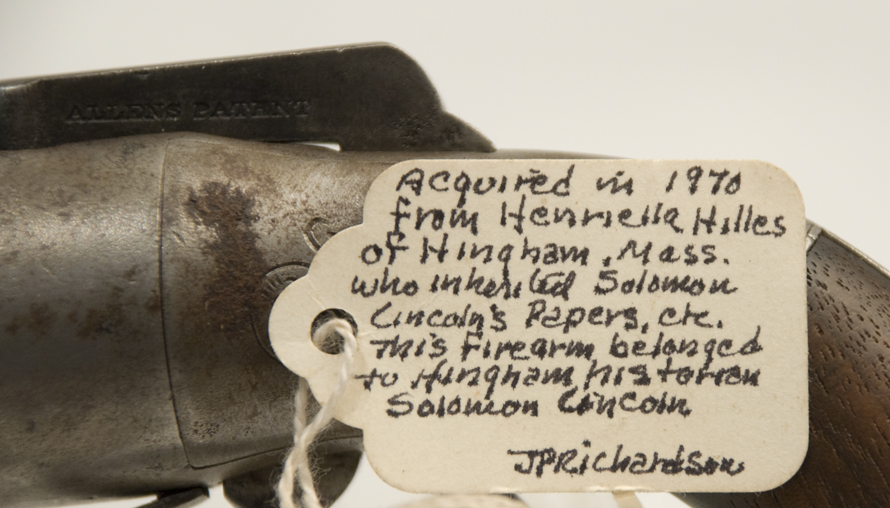 ALLEN'S PATENT
Acquired in 1970
from Henrietta Hilles
of Hingham, Mass.
who inherited Solomon
Lincoln's Papers, etc.
This Firearm belonged
to Hingham historian
Solomon Lincoln
JPRichardson